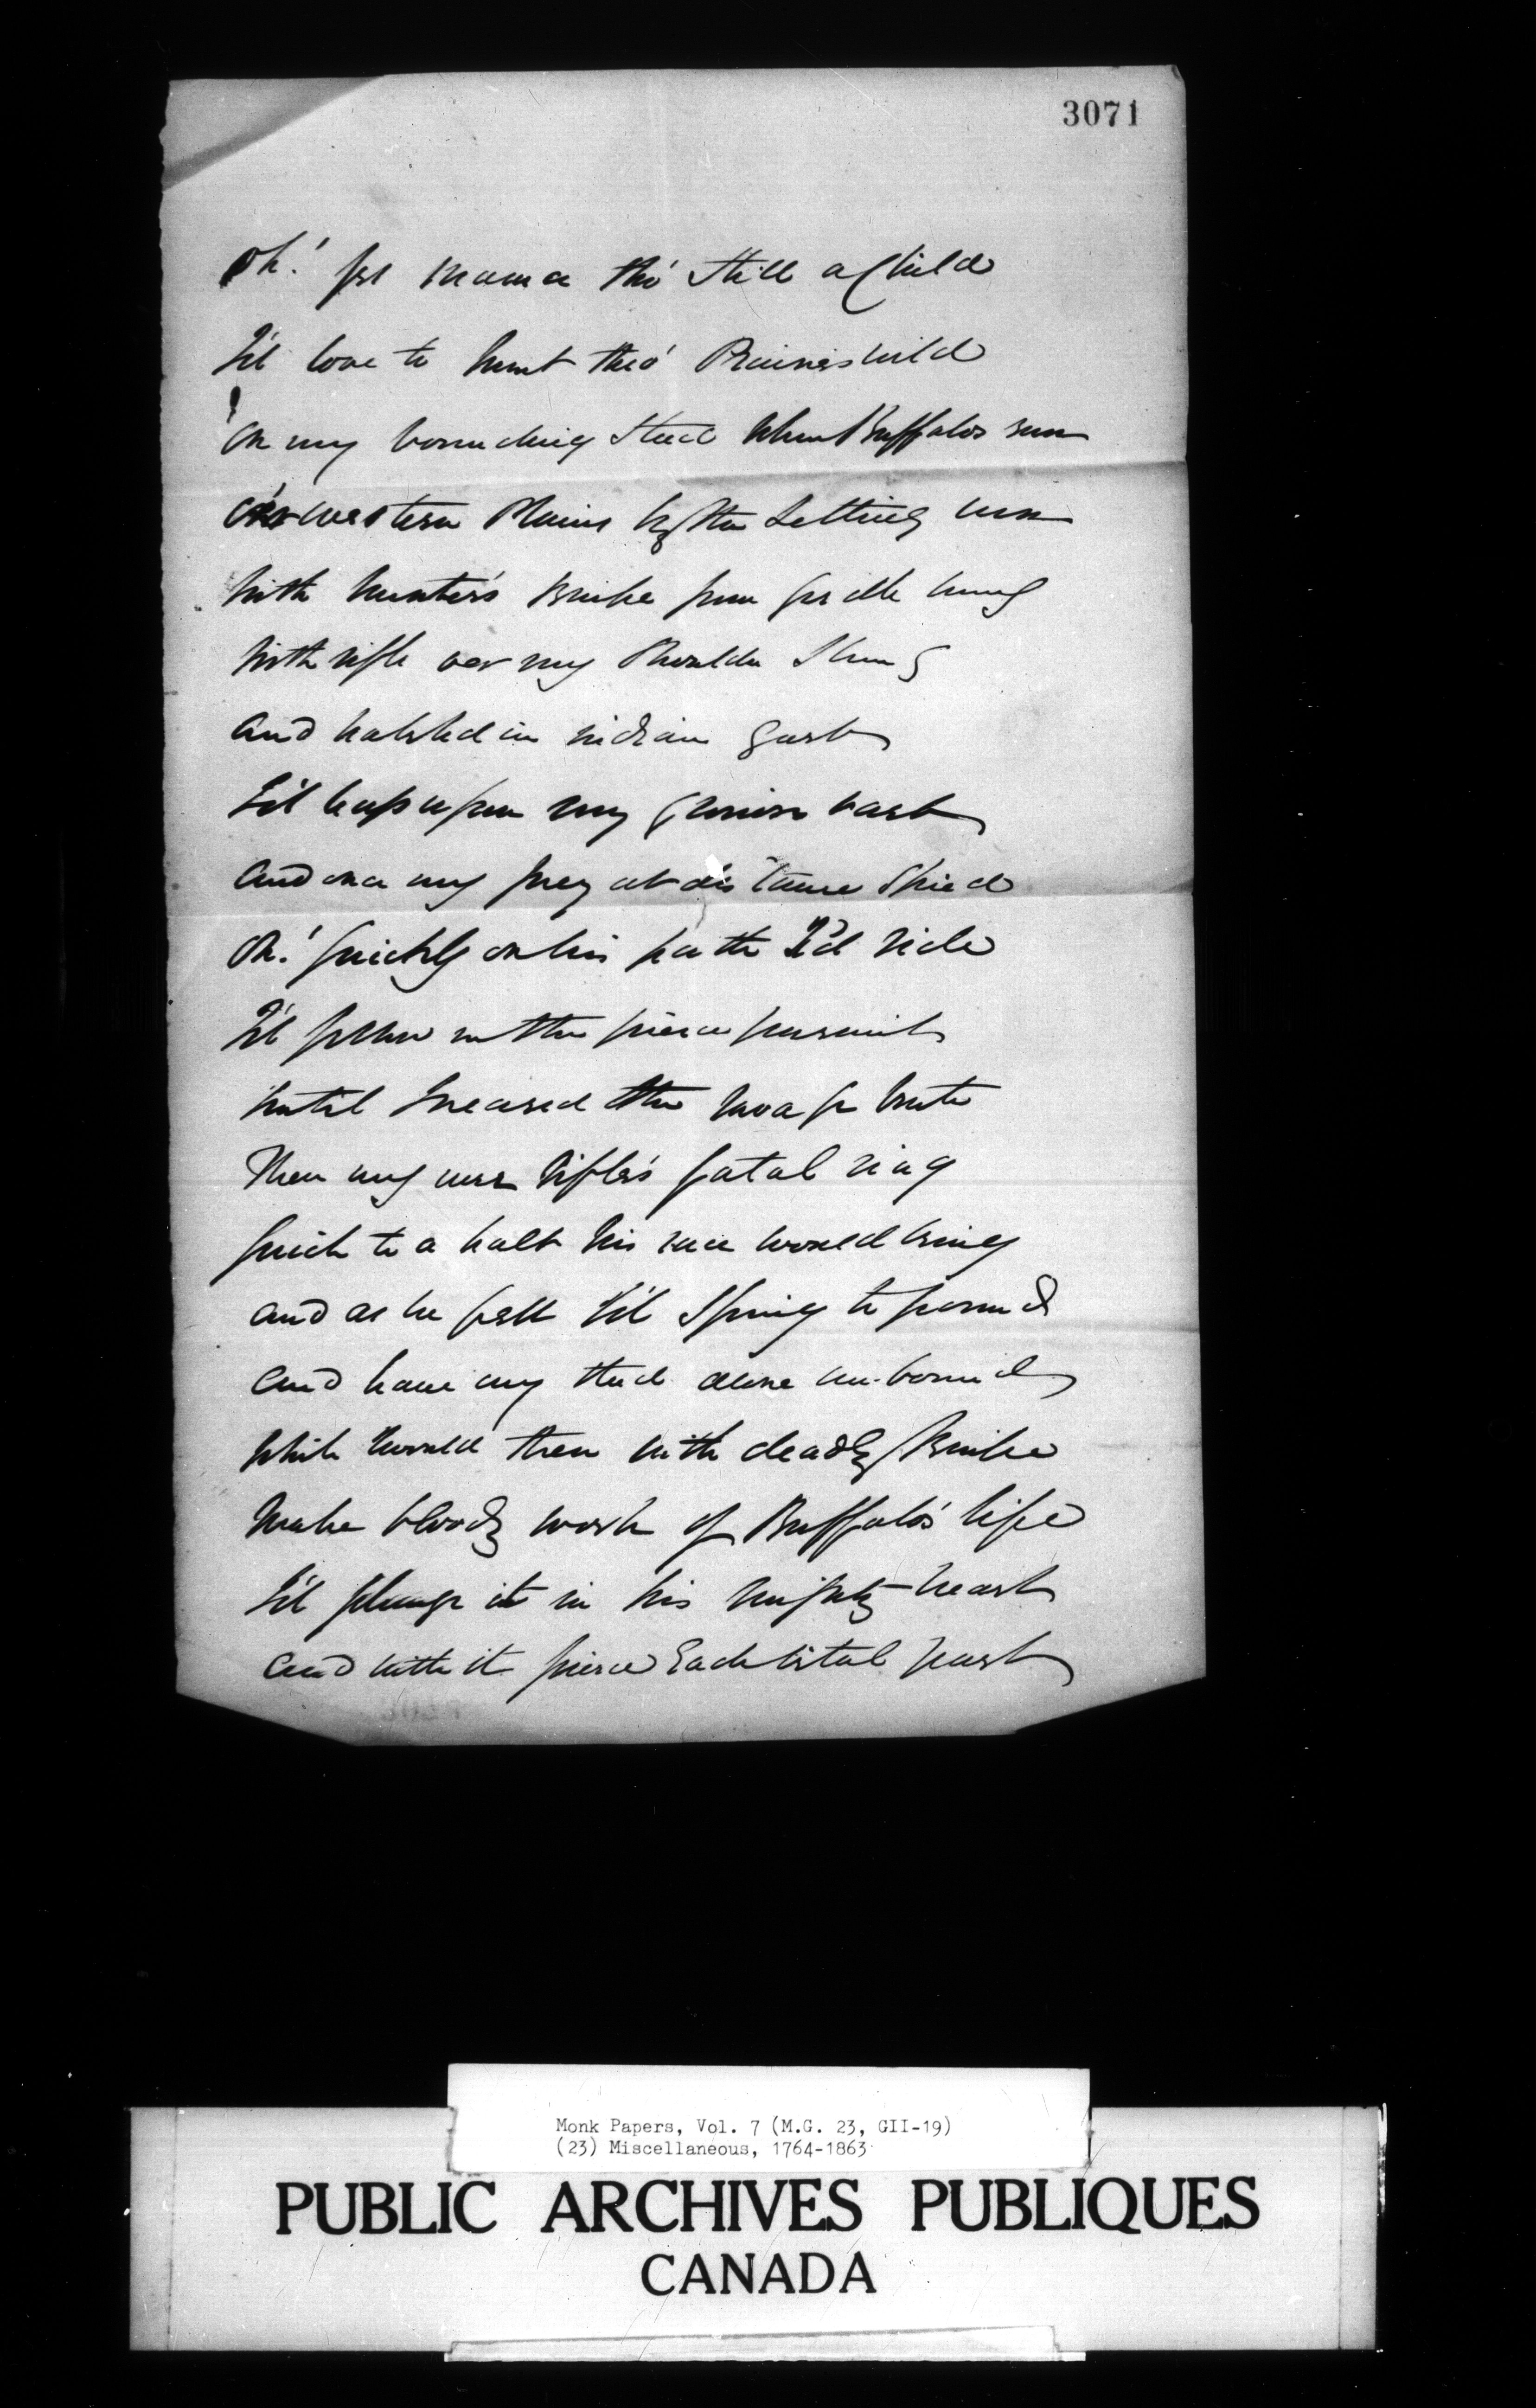 3071
Oh! yes mama tho' still a Child
I'd love to hunt thro' Prairies wild
On my bounding steed when Buffalos run
O'er western Plains by the Setting sun
With hunter's Knife from girdle hung
With rifle oer my Shoulder Slung
and habited in indian garb
I'd leap upon my barb
and once my prey at distance Spied
Oh! quickly on his path I'd ride
I'd follow in the fierce pursuit
Until I neared the savage brute
Then my sure Rifle's fatal ring
Quick to a halt his race would bring
and as he fell I'd Spring to ground
and leave my steed alone un-bound
While I would then with deadly Knife
Make bloody work of Buffalo's life
I'd plunge it in his mighty heart
and with it pierce Each vital part
Monk Papers, Vol. 7 (M.G. 23, GII-19)
(23) Miscellaneous, 1764-1863
PUBLIC ARCHIVES PUBLIQUES
CANADA